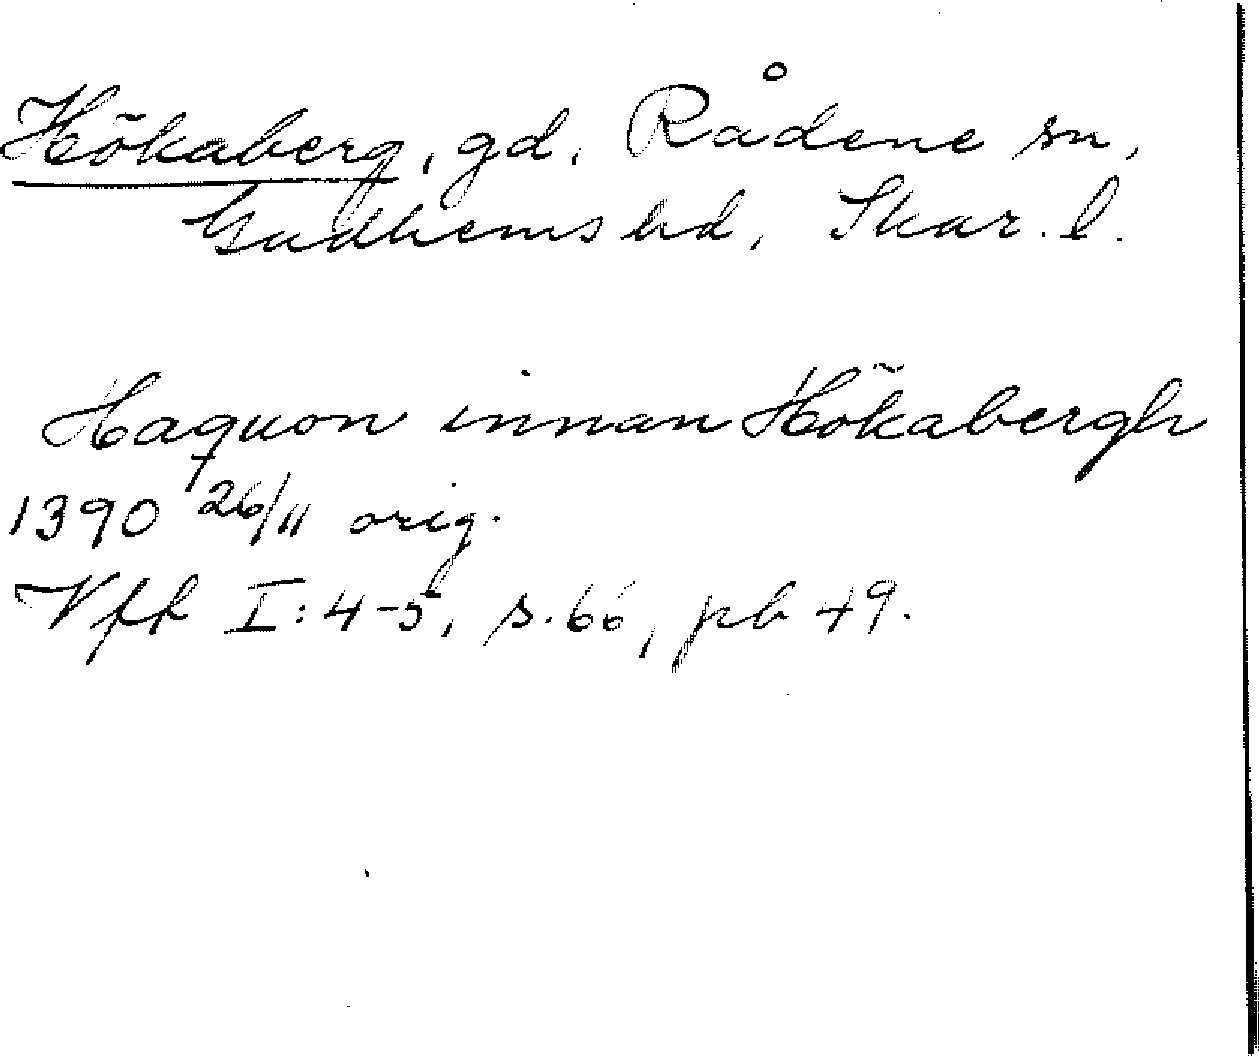 Hökaberg, gd, Rådene sn,
Gudhems hd, Skar. l.
Haquon innan Hökabergh
1390 26/11 orig.
Vff I: 4-5, s. 66, pb 49.